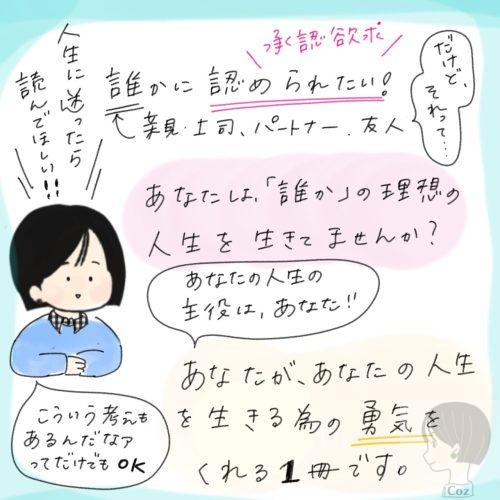 人生に迷ったら
読んでほしい!!
承認欲求
誰かに認められたい!
親・上司、パートナー、友人
だけど、
それって…
あなたは、「誰か」の理想の
人生を生きてませんか?
あなたの人生の
主役は、あなた!!
あなたが、あなたの人生
を生きる為の勇気を
くれる1冊です。
こういう考えも
あるんだなァ
ってだけでもOK
Coz